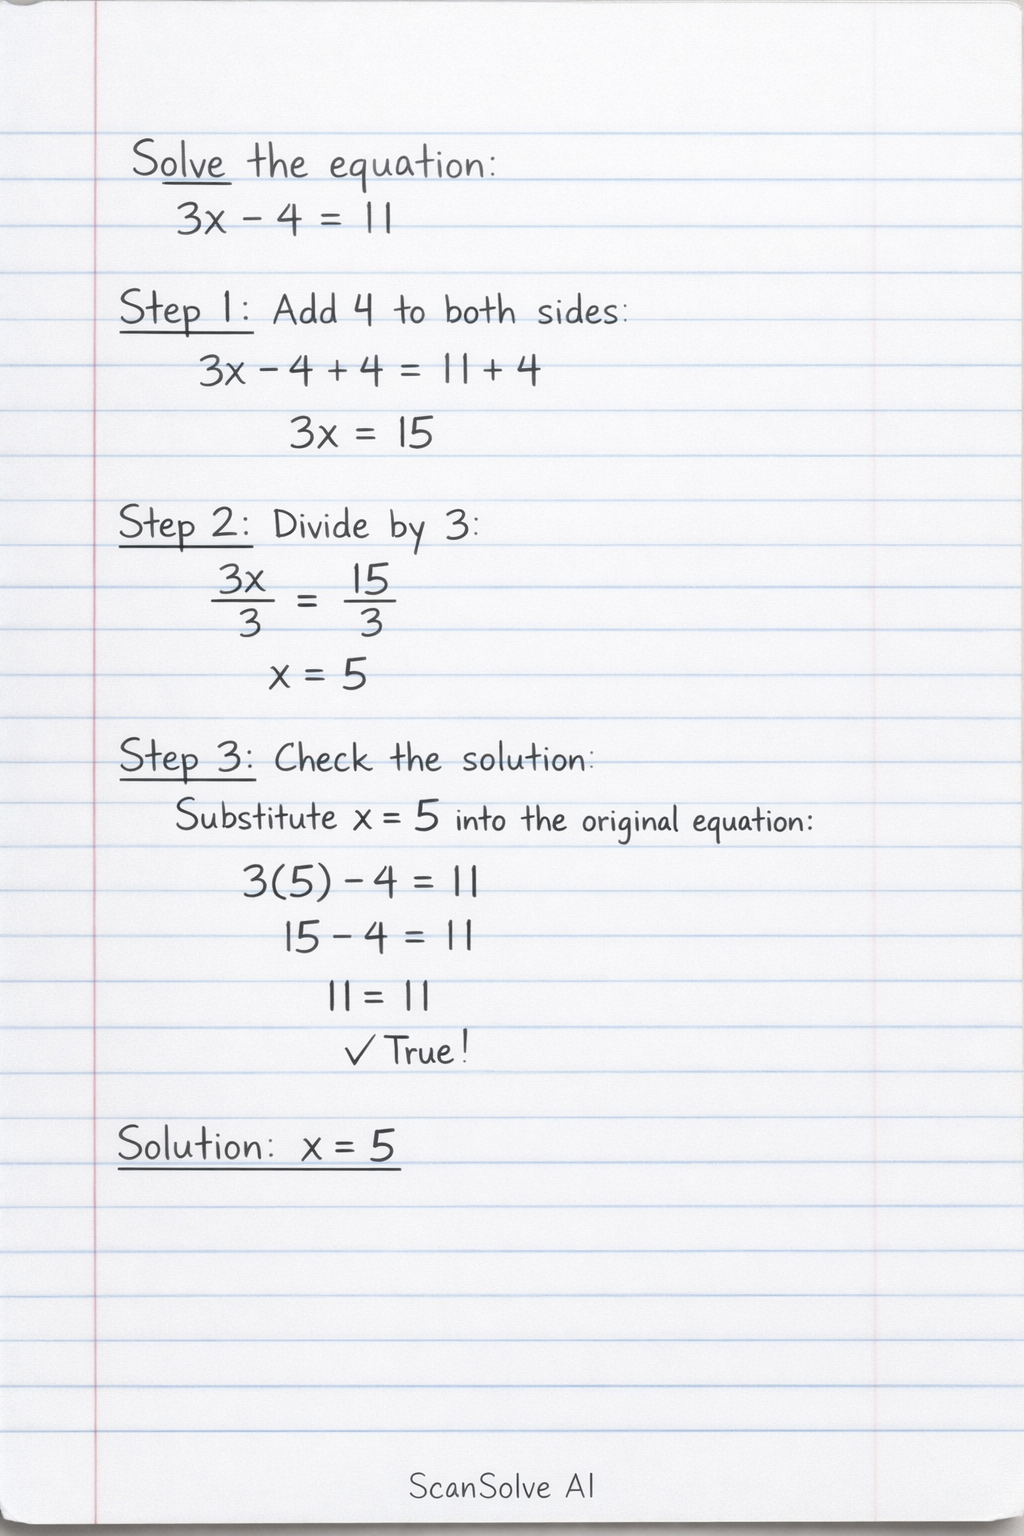 Solve the equation:
3x - 4 = 11
Step 1: Add 4 to both sides:
3x - 4 + 4 = 11 + 4
3x = 15
Step 2: Divide by 3:
3x/3 = 15/3
x = 5
Step 3: Check the solution:
Substitute x = 5 into the original equation:
3(5) - 4 = 11
15 - 4 = 11
11 = 11
✓ True!
Solution: x = 5
ScanSolve AI